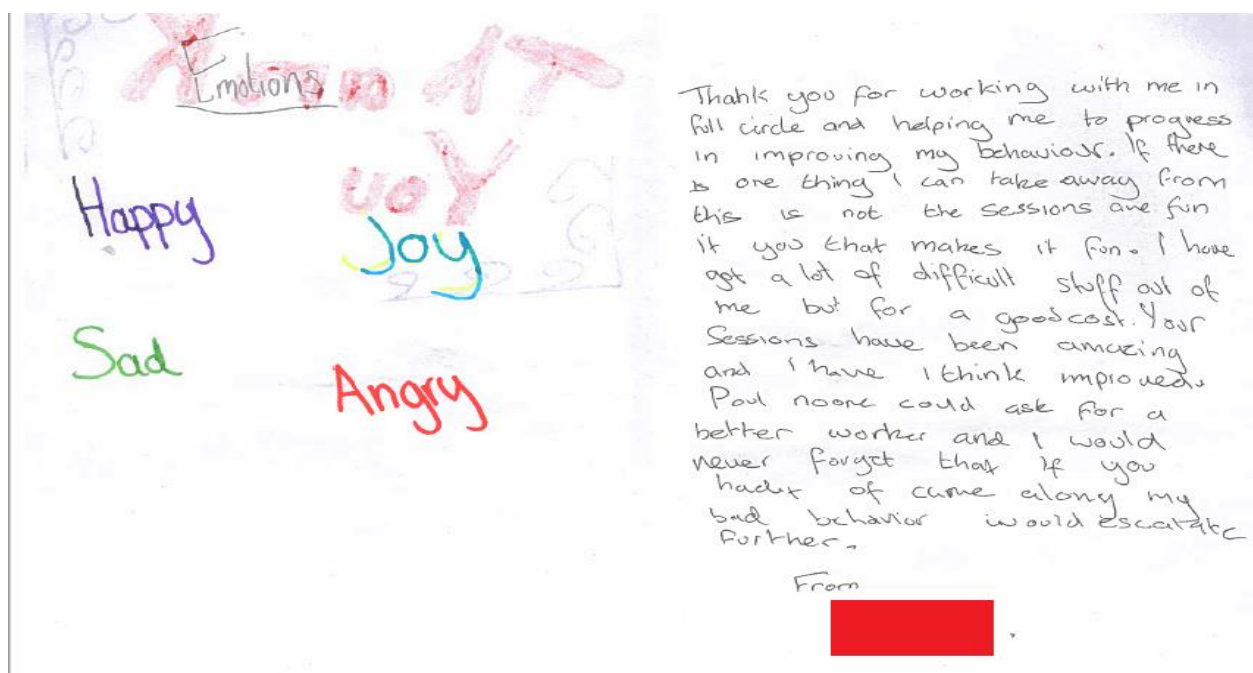 Emotions
Happy
Joy
Sad
Angry
Thank you for working with me in
full circle and helping me to progress
in improving my behaviour. If there
is one thing I can take away from
this is not the sessions are fun
it you that makes it fun. I have
got a lot of difficult stuff out of
me but for a good cost. Your
Sessions have been amazing
and I have I think improved.
Paul noone could ask for a
better worker and I would
never forget that if you
hadnt of came along my
bad behavior would escalate
further.
From